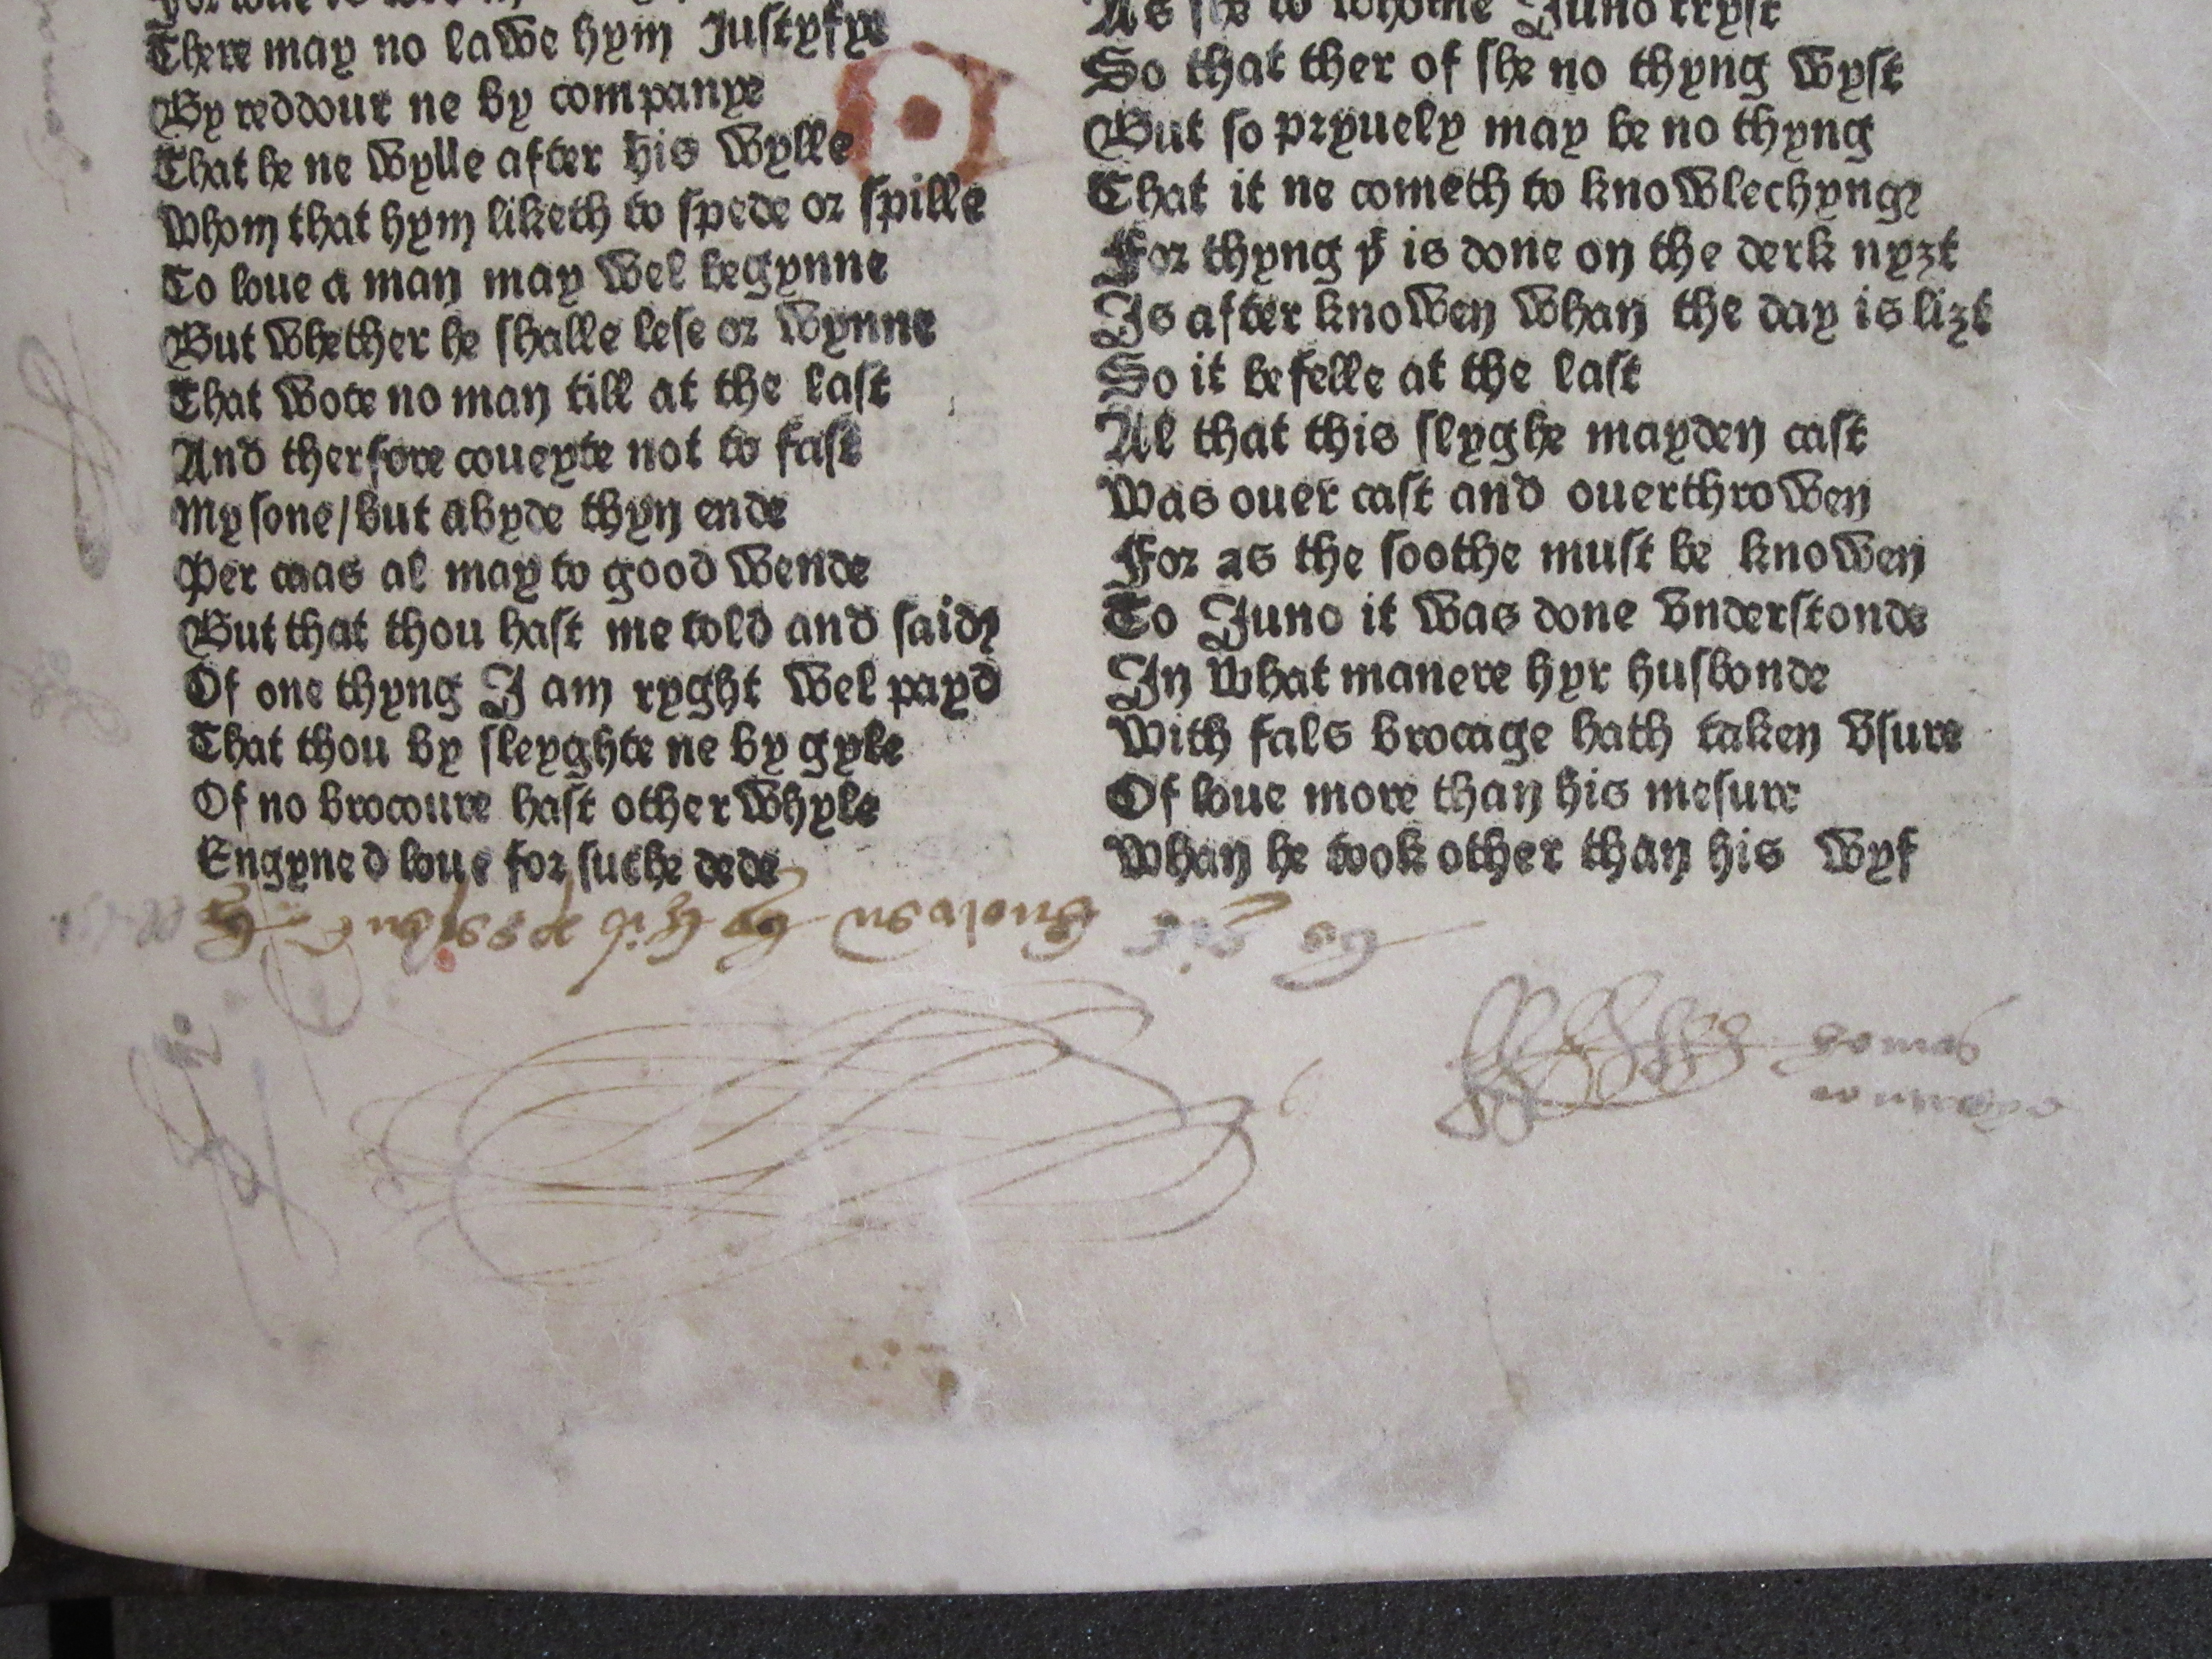 There may no lawe hym Justyfye
By reddour ne by companye
That he ne wylle after his wylle
Whom that hym liketh to spede or spille
To loue a man may wel begynne
But whether he shalle lese or wynne
That wote no man till at the last
And therfore coueyte not to fast
My sone/but abyde thyn ende
Per caas al may to good wende
But that thou hast me told and said
Of one thyng I am ryght wel payd
That thou by sleyghte ne by gyle
Of no brocoure hast other whyle
Engyned loue for suche dede
As she to whome Juno tryst
So that ther of she no thyng wyst
But so pryuely may be no thyng
That it ne cometh to knowlechyng
For thyng þᵗ is done on the derk nyȝt
Is after knowen whan the day is liȝt
So it befelle at the last
Al that this slyghe mayden cast
Was ouer cast and ouerthrowen
For as the soothe must be knowen
To Juno it was done vnderstonde
In what manere hyr husbonde
With fals brocage hath taken vsure
Of loue more than his mesure
Whan he took other than his wyf
Be it knowen by thes presen
homas